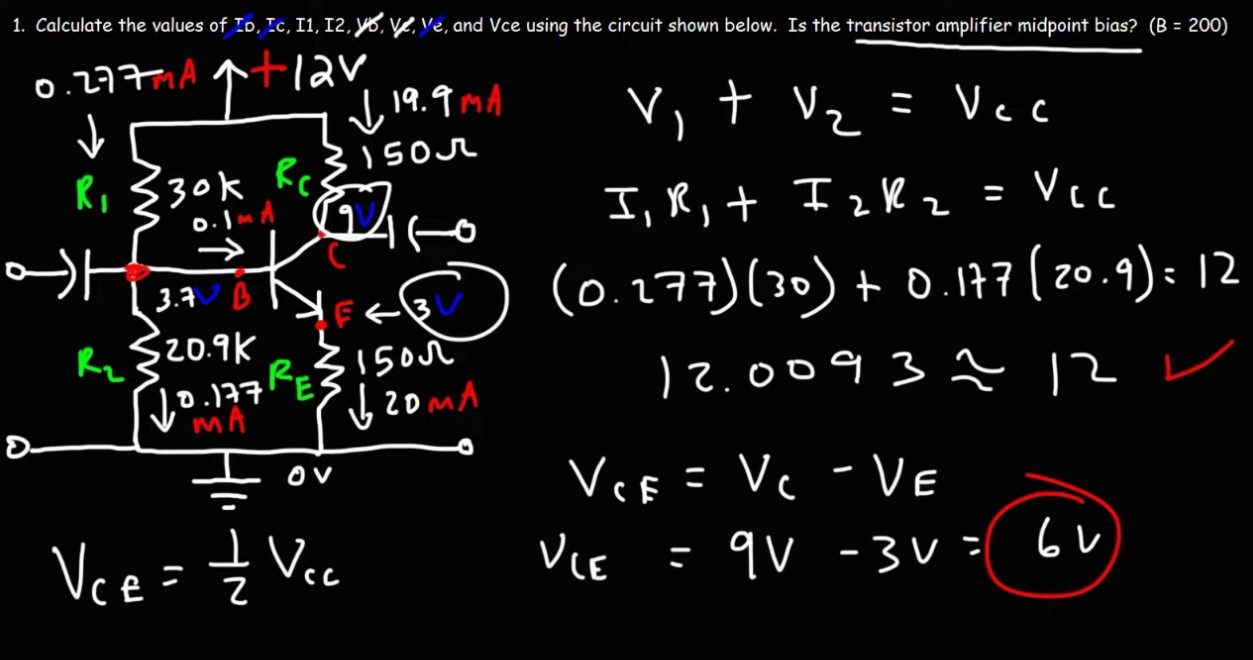 1. Calculate the values of Ib, Ic, I1, I2, Vb, Vc, Ve, and Vce using the circuit shown below. Is the transistor amplifier midpoint bias? (B = 200)
0.277mA
+12V
19.9mA
150Ω
R1
30K
RC
9V
0.1mA
C
3.7V
B
E ← 3V
R2
20.9K
RE
150Ω
0.177
mA
20mA
0V
VCE = 1/2 VCC
V1 + V2 = VCC
I1R1 + I2R2 = VCC
(0.277)(30) + 0.177(20.9) = 12
12.0093 ≈ 12 ✓
VCE = VC - VE
VCE = 9V - 3V = 6V